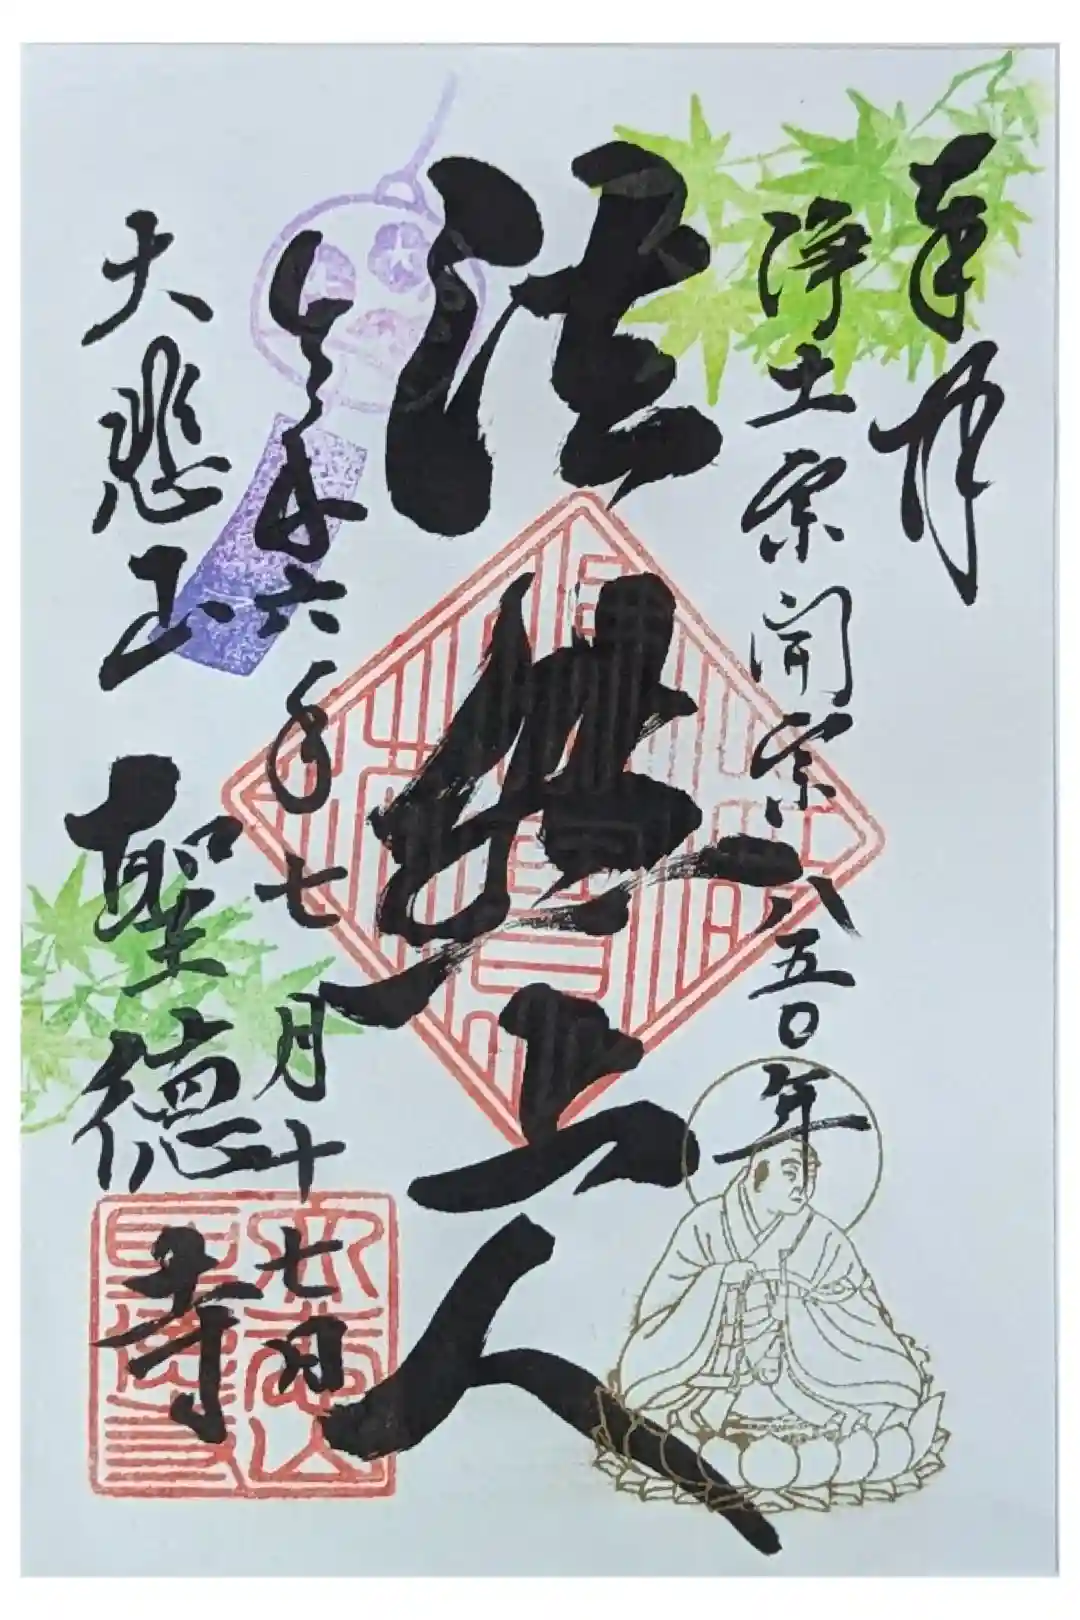 奉拝
浄土宗開宗八五〇年
法然上人
令和六年七月十七日
大悲山
聖徳寺